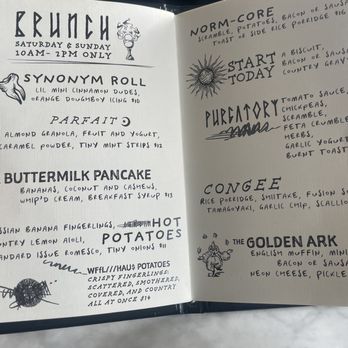 BRUNCH
SATURDAY & SUNDAY
10AM - 2PM ONLY
SYNONYM ROLL
LIL MINI CINNAMON DUDES,
ORANGE DOUGHBOY ICING $10
PARFAIT
ALMOND GRANOLA, FRUIT AND YOGURT,
CARAMEL POWDER, TINY MINT STRIPS $12
BUTTERMILK PANCAKE
BANANAS, COCONUT AND CASHEWS,
WHIP'D CREAM, BREAKFAST SYRUP $13
HOT
POTATOES
BANANA FINGERLINGS,
LEMON AIOLI,
STANDARD ISSUE ROMESCO, TINY ONIONS
WFFL///HAUS POTATOES
CRISPY FINGERLINGS:
SCATTERED, SMOTHERED,
COVERED, AND COUNTRY
ALL AT ONCE $14
NORM-CORE
SCRAMBLE, POTATOES, BACON OR
TOAST OR SIDE RICE PORRIDGE
START
TODAY
A BISCUIT,
BACON OR
COUNTRY
PURGATORY
TOMATO SAUCE,
CHICKPEAS,
SCRAMBLE,
FETA
HERBS,
GARLIC
BURNT TOAST
CONGEE
RICE PORRIDGE, SHIITAKE, FUSION
TAMAGOYAKI, GARLIC CHIP,
THE GOLDEN ARK
ENGLISH MUFFIN,
BACON OR
NEON CHEESE,